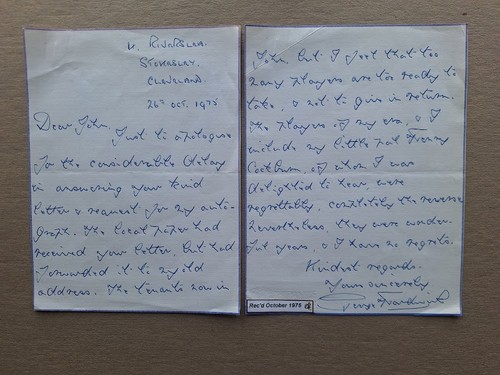 11, Riverslea,
Stokesley,
Cleveland.
26th Oct. 1975
Dear John,
Just to apologise
for the considerable delay
in answering your kind
letter & request for my auto-
graph. The local paper had
received your letter, but had
forwarded it to my old
address. The tenants now in
John, but I feel that too
many players are too ready to
take, & not to give in return.
The players of my era, & I
include my little pal Fenny
Cockburn, of whom I was
delighted to hear, were
regrettably, completely the reverse
Nevertheless, they were wonder-
ful years, & I have no regrets.
Kindest regards.
Yours sincerely
George Hardwick
Rec'd October 1975